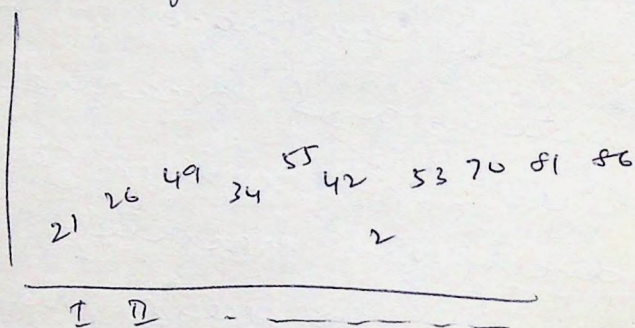 21 26 49 34 55 42 2 53 70 81 86
I II - - - - - -